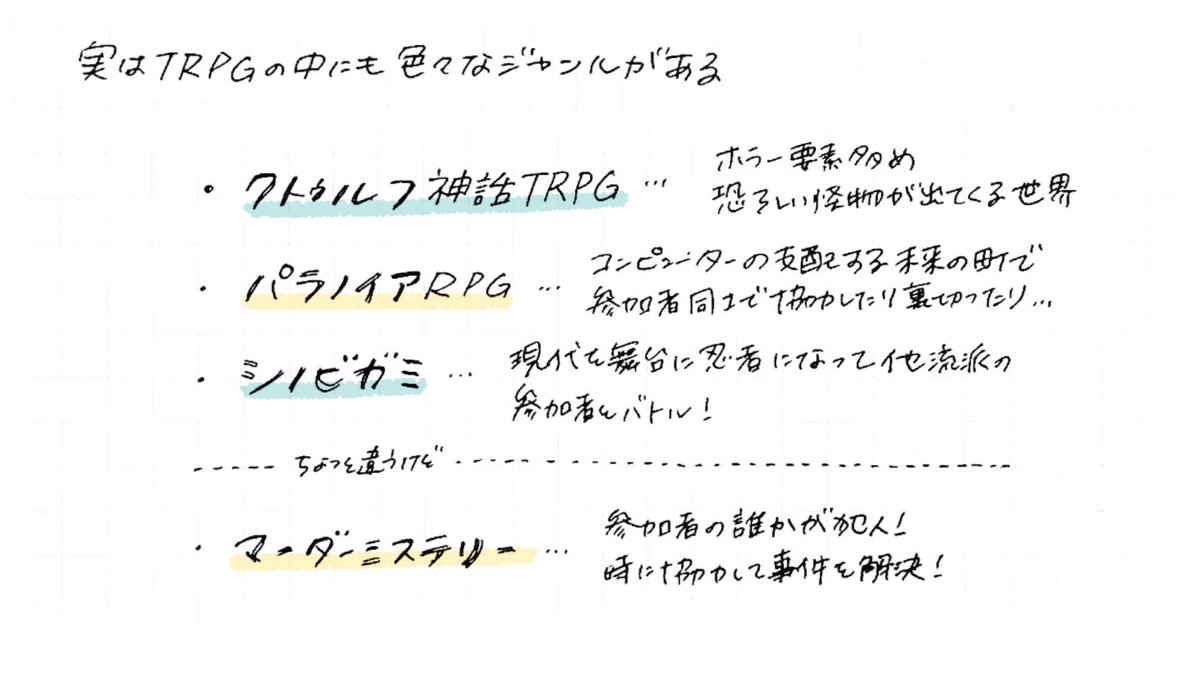 実はTRPGの中にも色々なジャンルがある
・クトゥルフ神話TRPG … ホラー要素多め
恐ろしい怪物が出てくる世界
・パラノイアRPG … コンピューターの支配する未来の町で
参加者同士で協力したり裏切ったり…
・シノビガミ … 現代を舞台に忍者になって他流派の
参加者とバトル!
----- ちょっと違うけど -----
・マーダーミステリー … 参加者の誰かが犯人!
時に協力して事件を解決!